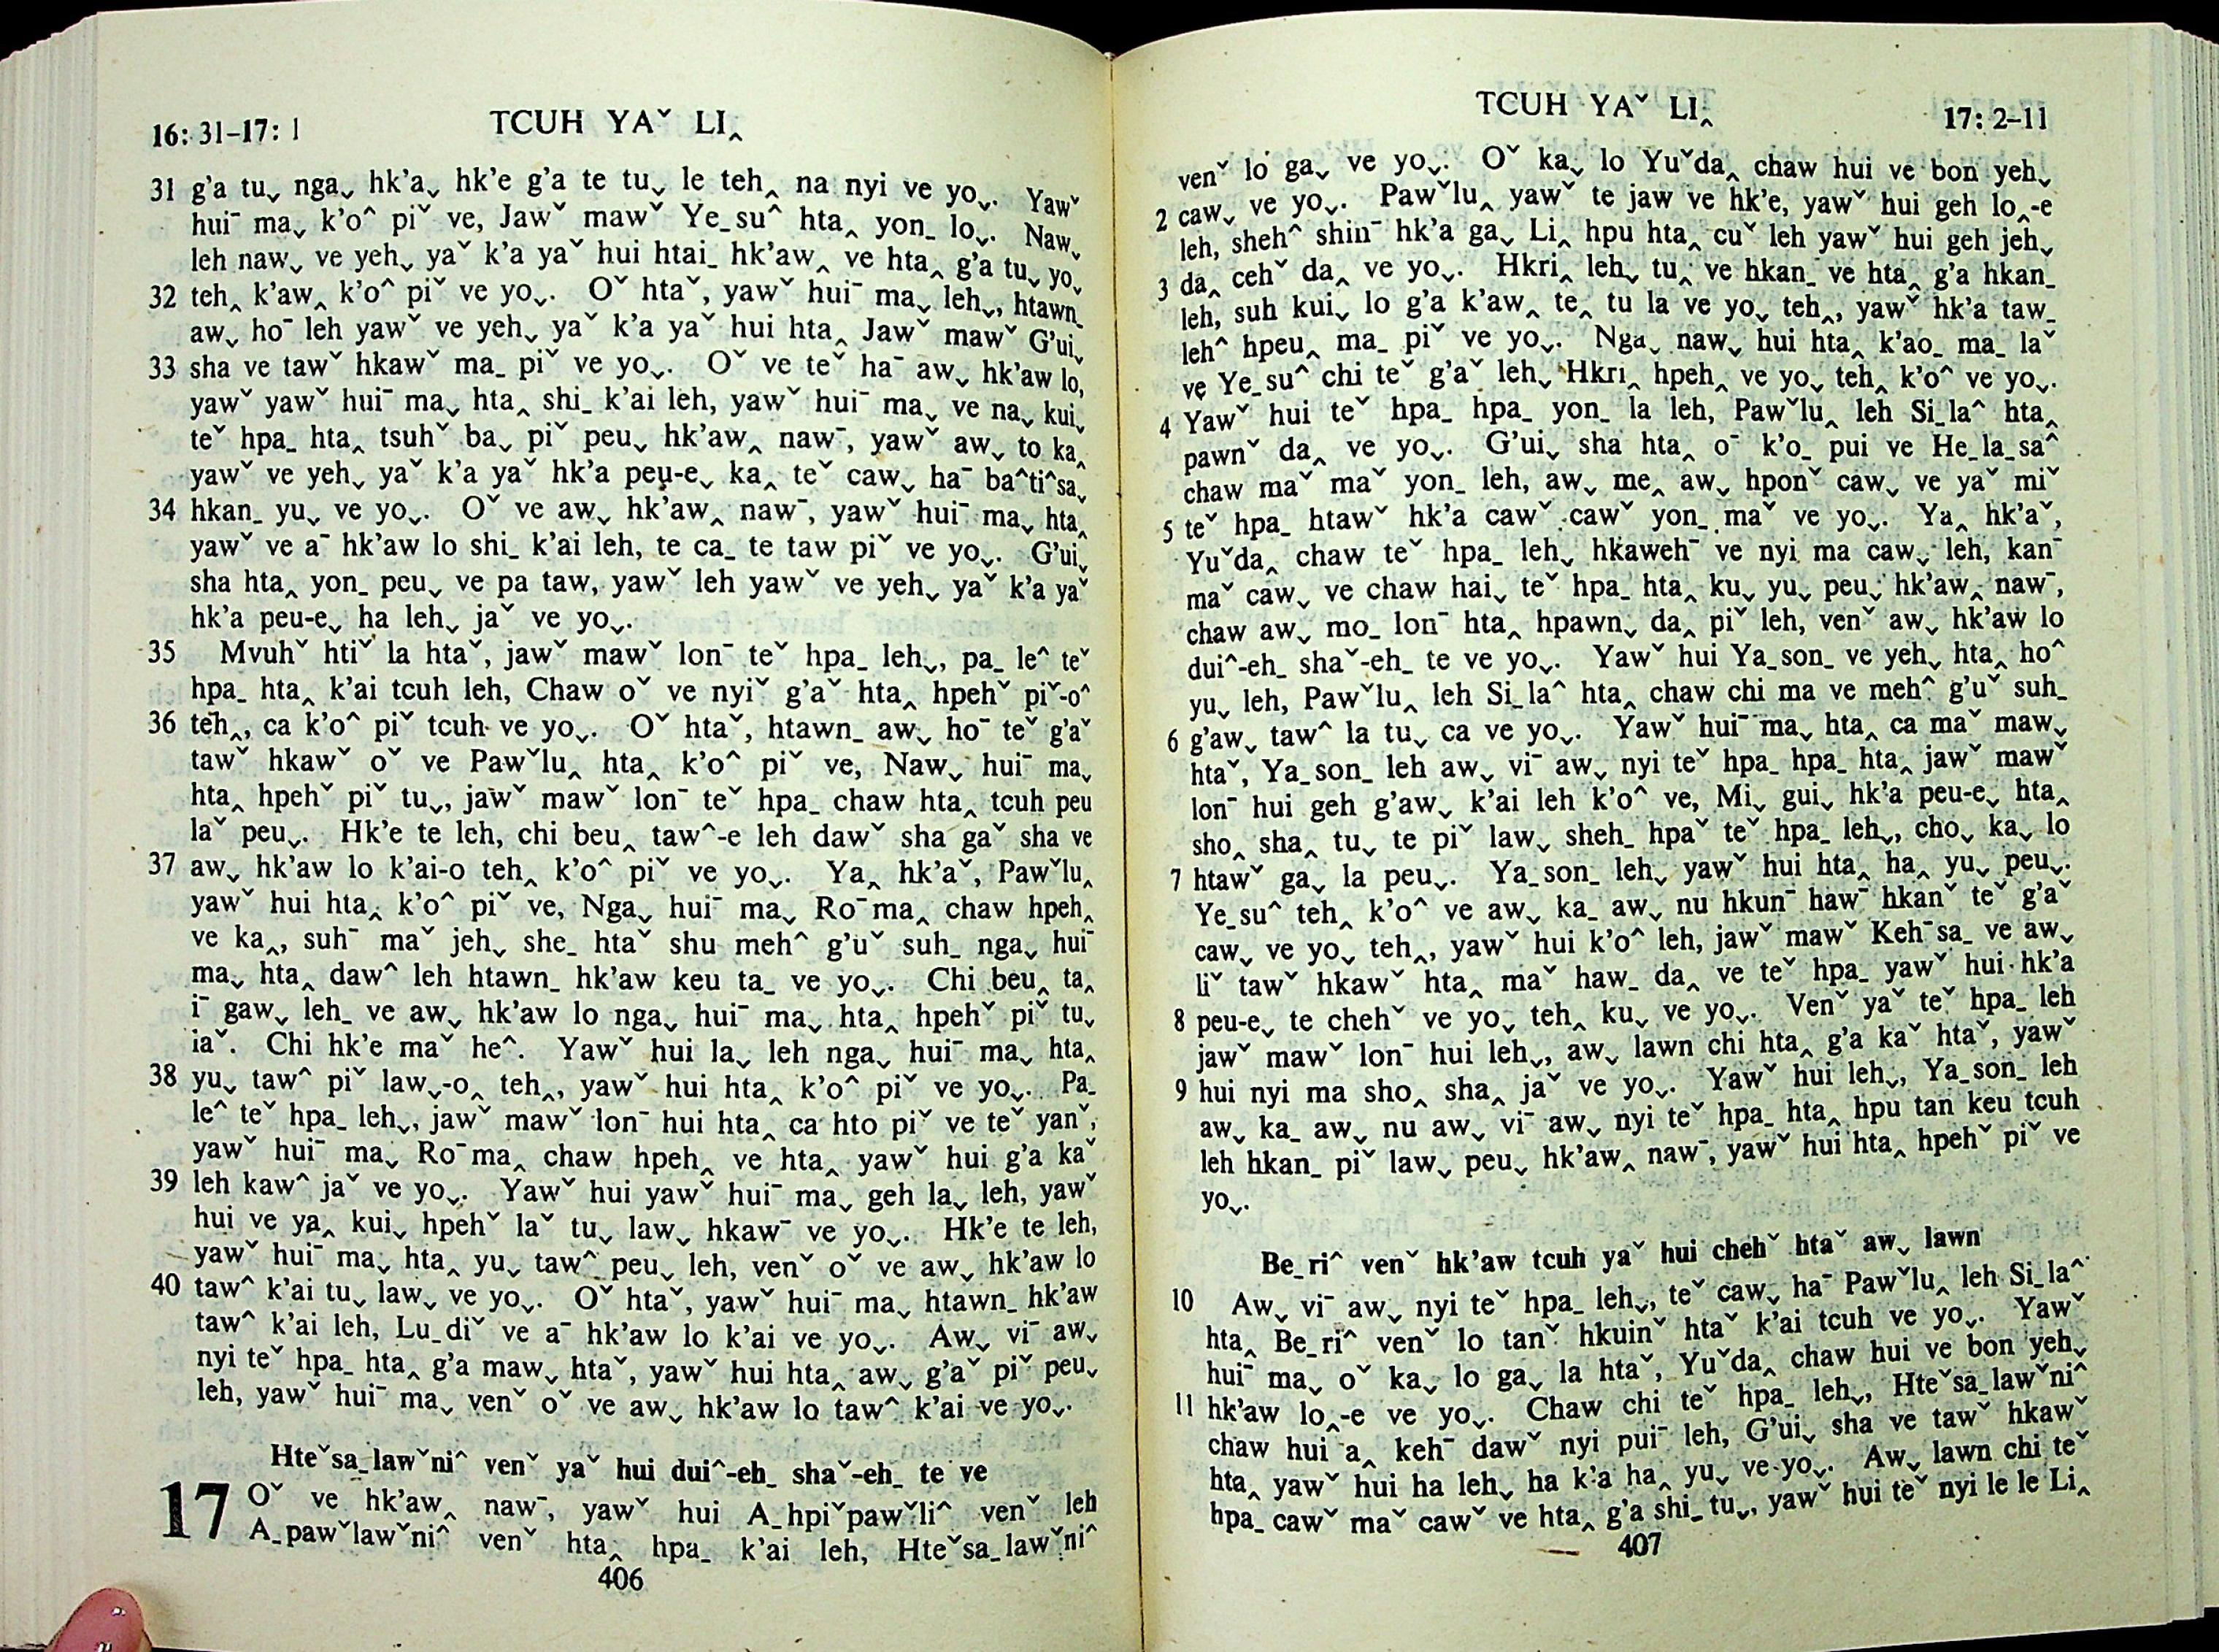 16: 31–17: 1
TCUH YAˇ LI‸
31 g'a tuˬ ngaˬ hk'aˬ hk'e g'a te tuˬ le teh‸ na nyi ve yoˬ. Yawˇ
huiˉ maˬ k'oˆ piˇ ve, Jawˇ mawˇ Ye_suˆ hta‸ yon_ loˬ. Nawˬ
leh nawˬ ve yehˬ yaˇ k'a yaˇ hui htai_ hk'aw‸ ve hta‸ g'a tuˬ yoˬ
32 teh‸ k'aw‸ k'oˆ piˇ ve yoˬ. Oˇ htaˇ, yawˇ huiˉ maˬ lehˬ, htawn_
awˬ hoˉ leh yawˇ ve yehˬ yaˇ k'a yaˇ hui hta‸ Jawˇ mawˇ G'uiˬ
33 sha ve tawˇ hkawˇ ma_ piˇ ve yoˬ. Oˇ ve teˇ haˉ awˬ hk'aw lo,
yawˇ yawˇ huiˉ maˬ hta‸ shi_ k'ai leh, yawˇ huiˉ maˬ ve naˬ kuiˬ
teˇ hpa_ hta‸ tsuhˇ baˬ piˇ peuˬ hk'aw‸ nawˉ, yawˇ awˬ to ka‸
yawˇ ve yehˬ yaˇ k'a yaˇ hk'a peu-eˬ ka‸ teˇ cawˬ haˉ baˆtiˆsaˬ
34 hkan_ yuˬ ve yoˬ. Oˇ ve awˬ hk'aw‸ nawˉ, yawˇ huiˉ maˬ hta‸
yawˇ ve aˉ hk'aw lo shi_ k'ai leh, te ca_ te taw piˇ ve yoˬ. G'uiˬ
sha hta‸ yon_ peuˬ ve pa taw, yawˇ leh yawˇ ve yehˬ yaˇ k'a yaˇ
hk'a peu-eˬ ha lehˬ jaˇ ve yoˬ.
35 Mvuhˇ htiˇ la htaˇ, jawˇ mawˇ lonˉ teˇ hpa_ lehˬ, pa_ leˆ teˇ
hpa_ hta‸ k'ai tcuh leh, Chaw oˇ ve nyiˇ g'aˇ hta‸ hpehˇ piˇ-oˆ
36 teh‸, ca k'oˆ piˇ tcuh ve yoˬ. Oˇ htaˇ, htawn_ awˬ hoˉ teˇ g'aˇ
tawˇ hkawˇ oˇ ve Pawˇlu‸ hta‸ k'oˆ piˇ ve, Nawˬ huiˉ maˬ
hta‸ hpehˇ piˇ tuˬ, jawˇ mawˇ lonˉ teˇ hpa_ chaw hta‸ tcuh peu
laˇ peuˬ. Hk'e te leh, chi beu‸ tawˆ-e leh dawˇ sha gaˇ sha ve
37 awˬ hk'aw lo k'ai-o teh‸ k'oˆ piˇ ve yoˬ. Ya‸ hk'aˇ, Pawˇlu‸
yawˇ hui hta‸ k'oˆ piˇ ve, Ngaˬ huiˉ maˬ Roˉma‸ chaw hpeh‸
ve ka‸, suhˉ maˇ jehˬ she_ htaˇ shu mehˆ g'uˇ suh_ ngaˬ huiˉ
maˬ hta‸ dawˆ leh htawn_ hk'aw keu ta_ ve yoˬ. Chi beu‸ ta‸
iˉ gawˬ leh_ ve awˬ hk'aw lo ngaˬ huiˉ maˬ hta‸ hpehˇ piˇ tuˬ
iaˇ. Chi hk'e maˇ heˆ. Yawˇ hui laˬ leh ngaˬ huiˉ maˬ hta‸
38 yuˬ tawˆ piˇ lawˬ-o‸ teh‸, yawˇ hui hta‸ k'oˆ piˇ ve yoˬ. Pa_
leˆ teˇ hpa_ lehˬ, jawˇ mawˇ lonˉ hui hta‸ ca hto piˇ ve teˇ yanˇ,
yawˇ huiˉ maˬ Roˉma‸ chaw hpeh‸ ve hta‸ yawˇ hui g'a kaˇ
39 leh kawˆ jaˇ ve yoˬ. Yawˇ hui yawˇ huiˉ maˬ geh laˬ leh, yawˇ
hui ve ya‸ kuiˬ hpehˇ laˇ tuˬ lawˬ hkawˉ ve yoˬ. Hk'e te leh,
yawˇ huiˉ maˬ hta‸ yuˬ tawˆ peuˬ leh, venˇ oˇ ve awˬ hk'aw lo
40 tawˆ k'ai tuˬ lawˬ ve yoˬ. Oˇ htaˇ, yawˇ huiˉ maˬ htawn_ hk'aw
tawˆ k'ai leh, Lu_diˇ ve aˉ hk'aw lo k'ai ve yoˬ. Awˬ viˉ awˬ
nyi teˇ hpa_ hta‸ g'a mawˬ htaˇ, yawˇ hui hta‸ awˬ g'aˇ piˇ peuˬ
leh, yawˇ huiˉ maˬ venˇ oˇ ve awˬ hk'aw lo tawˆ k'ai ve yoˬ.
Hteˇsa_lawˇniˆ venˇ yaˇ hui duiˆ-eh_ shaˇ-eh_ te ve
17 Oˇ ve hk'aw‸ nawˉ, yawˇ hui A_hpiˇpawˇliˆ venˇ leh
A_pawˇlawˇniˆ venˇ hta‸ hpa_ k'ai leh, Hteˇsa_lawˇniˆ
406
TCUH YAˇ LI‸
17: 2–11
venˇ lo gaˬ ve yoˬ. Oˇ kaˬ lo Yuˇda‸ chaw hui ve bon yehˬ
2 cawˬ ve yoˬ. Pawˇlu‸ yawˇ te jaw ve hk'e, yawˇ hui geh lo‸-e
leh, shehˆ shinˉ hk'a gaˬ Li‸ hpu hta‸ cuˇ leh yawˇ hui geh jehˬ
3 da‸ cehˇ da‸ ve yoˬ. Hkri‸ lehˬ tu‸ ve hkan_ ve hta‸ g'a hkan_
leh, suh kuiˬ lo g'a k'aw‸ te‸ tu la ve yoˬ teh‸, yawˇ hk'a taw_
lehˆ hpeu‸ ma_ piˇ ve yoˬ. Ngaˬ nawˬ hui hta‸ k'ao_ ma_ laˇ
ve Ye_suˆ chi teˇ g'aˇ lehˬ Hkri‸ hpeh‸ ve yoˬ teh‸ k'oˆ ve yoˬ.
4 Yawˇ hui teˇ hpa_ hpa_ yon_ la leh, Pawˇlu‸ leh Si_laˆ hta‸
pawnˇ da‸ ve yoˬ. G'uiˬ sha hta‸ oˉ k'o_ pui ve He_la_saˆ
chaw maˇ maˇ yon_ leh, awˬ me‸ awˬ hponˇ cawˬ ve yaˇ miˇ
5 teˇ hpa_ htawˇ hk'a cawˇ cawˇ yon_ maˇ ve yoˬ. Ya‸ hk'aˇ,
Yuˇda‸ chaw teˇ hpa_ lehˬ hkawehˉ ve nyi ma cawˬ leh, kanˉ
maˇ cawˬ ve chaw haiˬ teˇ hpa_ hta‸ kuˬ yuˬ peuˬ hk'aw‸ nawˉ,
chaw awˬ mo_ lonˉ hta‸ hpawnˬ da‸ piˇ leh, venˇ awˬ hk'aw lo
duiˆ-eh_ shaˇ-eh_ te ve yoˬ. Yawˇ hui Ya_son_ ve yehˬ hta‸ hoˆ
yuˬ leh, Pawˇlu‸ leh Si_laˆ hta‸ chaw chi ma ve mehˆ g'uˇ suh_
6 g'awˬ tawˆ la tuˬ ca ve yoˬ. Yawˇ huiˉ maˬ hta‸ ca maˇ mawˬ
htaˇ, Ya_son_ leh awˬ viˉ awˬ nyi teˇ hpa_ hpa_ hta‸ jawˇ mawˇ
lonˉ hui geh g'awˬ k'ai leh k'oˆ ve, Miˬ guiˬ hk'a peu-eˬ hta‸
sho‸ sha‸ tuˬ te piˇ lawˬ sheh_ hpaˇ teˇ hpa_ lehˬ, choˬ kaˬ lo
7 htawˇ gaˬ la peuˬ. Ya_son_ lehˬ yawˇ hui hta‸ ha‸ yuˬ peuˬ.
Ye_suˆ teh‸ k'oˆ ve awˬ ka_ awˬ nu hkunˉ hawˉ hkanˇ teˇ g'aˇ
cawˬ ve yoˬ teh‸, yawˇ hui k'oˆ leh, jawˇ mawˇ Kehˉsa_ ve awˬ
liˇ tawˇ hkawˇ hta‸ maˇ haw_ da‸ ve teˇ hpa_ yawˇ hui hk'a
8 peu-eˬ te chehˇ ve yoˬ teh‸ kuˬ ve yoˬ. Venˇ yaˇ teˇ hpa_ leh
jawˇ mawˇ lonˉ hui lehˬ, awˬ lawn chi hta‸ g'a kaˇ htaˇ, yawˇ
9 hui nyi ma sho‸ sha‸ jaˇ ve yoˬ. Yawˇ hui lehˬ, Ya_son_ leh
awˬ ka_ awˬ nu awˬ viˉ awˬ nyi teˇ hpa_ hta‸ hpu tan keu tcuh
leh hkan_ piˇ lawˬ peuˬ hk'aw‸ nawˉ, yawˇ hui hta‸ hpehˇ piˇ ve
yoˬ.
Be_riˆ venˇ hk'aw tcuh yaˇ hui chehˇ htaˇ awˬ lawn
10 Awˬ viˉ awˬ nyi teˇ hpa_ lehˬ, teˇ cawˬ haˉ Pawˇlu‸ leh Si_laˆ
hta‸ Be_riˆ venˇ lo tanˇ hkuinˇ htaˇ k'ai tcuh ve yoˬ. Yawˇ
huiˉ maˬ oˇ kaˬ lo gaˬ la htaˇ, Yuˇda‸ chaw hui ve bon yehˬ
11 hk'aw lo‸-e ve yoˬ. Chaw chi teˇ hpa_ lehˬ, Hteˇsa_lawˇniˆ
chaw hui a‸ kehˉ dawˇ nyi puiˉ leh, G'uiˬ sha ve tawˇ hkawˇ
hta‸ yawˇ hui ha lehˬ ha k'a ha‸ yuˬ ve yoˬ. Awˬ lawn chi teˇ
hpa_ cawˇ maˇ cawˇ ve hta‸ g'a shi_ tuˬ, yawˇ hui teˇ nyi le le Li‸
407